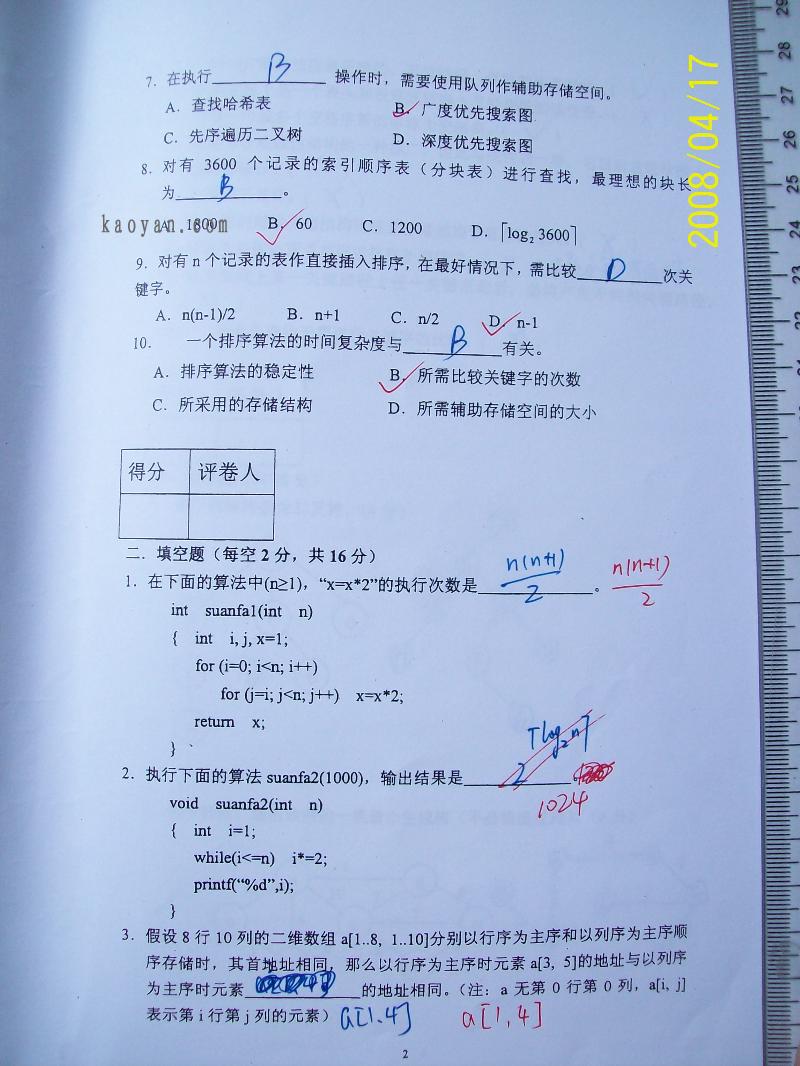 7. 在执行 B 操作时，需要使用队列作辅助存储空间。
A. 查找哈希表 B. 广度优先搜索图
C. 先序遍历二叉树 D. 深度优先搜索图
8. 对有 3600 个记录的索引顺序表（分块表）进行查找，最理想的块长
为 B 。
A. 1800 B. 60 C. 1200 D. ⌈log₂ 3600⌉
kaoyan.com
9. 对有 n 个记录的表作直接插入排序，在最好情况下，需比较 D 次关
键字。
A. n(n-1)/2 B. n+1 C. n/2 D. n-1
10. 一个排序算法的时间复杂度与 B 有关。
A. 排序算法的稳定性 B. 所需比较关键字的次数
C. 所采用的存储结构 D. 所需辅助存储空间的大小
得分 评卷人
二．填空题（每空 2 分，共 16 分）
1. 在下面的算法中(n≥1)，“x=x*2”的执行次数是 n(n+1)/2 。 n(n+1)/2
int suanfa1(int n)
{ int i, j, x=1;
for (i=0; i<n; i++)
for (j=i; j<n; j++) x=x*2;
return x;
}
2. 执行下面的算法 suanfa2(1000)，输出结果是 2⌈log₂n⌉ 。
1024
void suanfa2(int n)
{ int i=1;
while(i<=n) i*=2;
printf(“%d”,i);
}
3. 假设 8 行 10 列的二维数组 a[1..8, 1..10]分别以行序为主序和以列序为主序顺
序存储时，其首地址相同，那么以行序为主序时元素 a[3, 5]的地址与以列序
为主序时元素 的地址相同。（注：a 无第 0 行第 0 列，a[i, j]
表示第 i 行第 j 列的元素） a[1.4] a[1,4]
2
2008/04/17
29
28
27
26
25
24
23
22
21